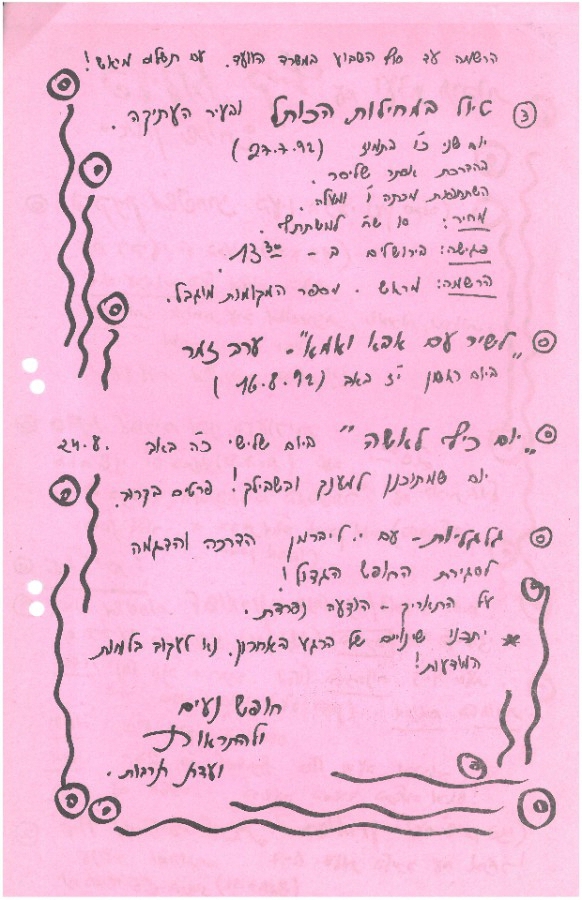 הרשמה עד סוף השבוע במשרד הוועד. עם תשלום מראש!
③ טיול במחילות הכותל ובעיר העתיקה.
יום שני כ"ו בתמוז (27.7.92)
בהדרכת אסתר שליסר.
השתתפות מכתה ו' ומעלה.
מחיר: 10 ש"ח למשתתף.
פגישה: בירושלים ב- 13.30
הרשמה: מראש. מספר המקומות מוגבל.
"לשיר עם אבא ואמא" - ערב זמר
ביום ראשון י"ז באב (16.8.92)
"יום כיף לאשה" ביום שלישי כ"ה באב 24.8.
יום שמתוכנן למענך ובשבילך! פרטים בקרוב.
גלגליות - עם י. ליברמן הדרכה והדגמה
לסגירת החופש הגדול!
על התאריך - הודעה נפרדת.
* יתכנו שינויים של הרגע האחרון. נא לעקוב בלוחות
המודעות!
חופש נעים
ולהתראות
ועדת תרבות.